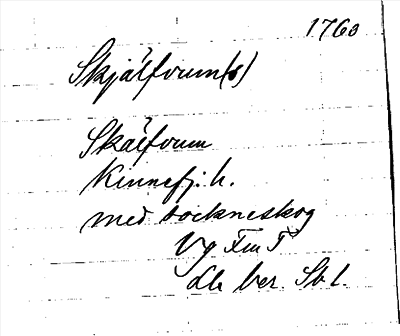 1760
Skjälfvum(s)
Skälfvum
Kinnefj. h.
med sockneskog
Vg Fm T
Lb ber. Sv l.